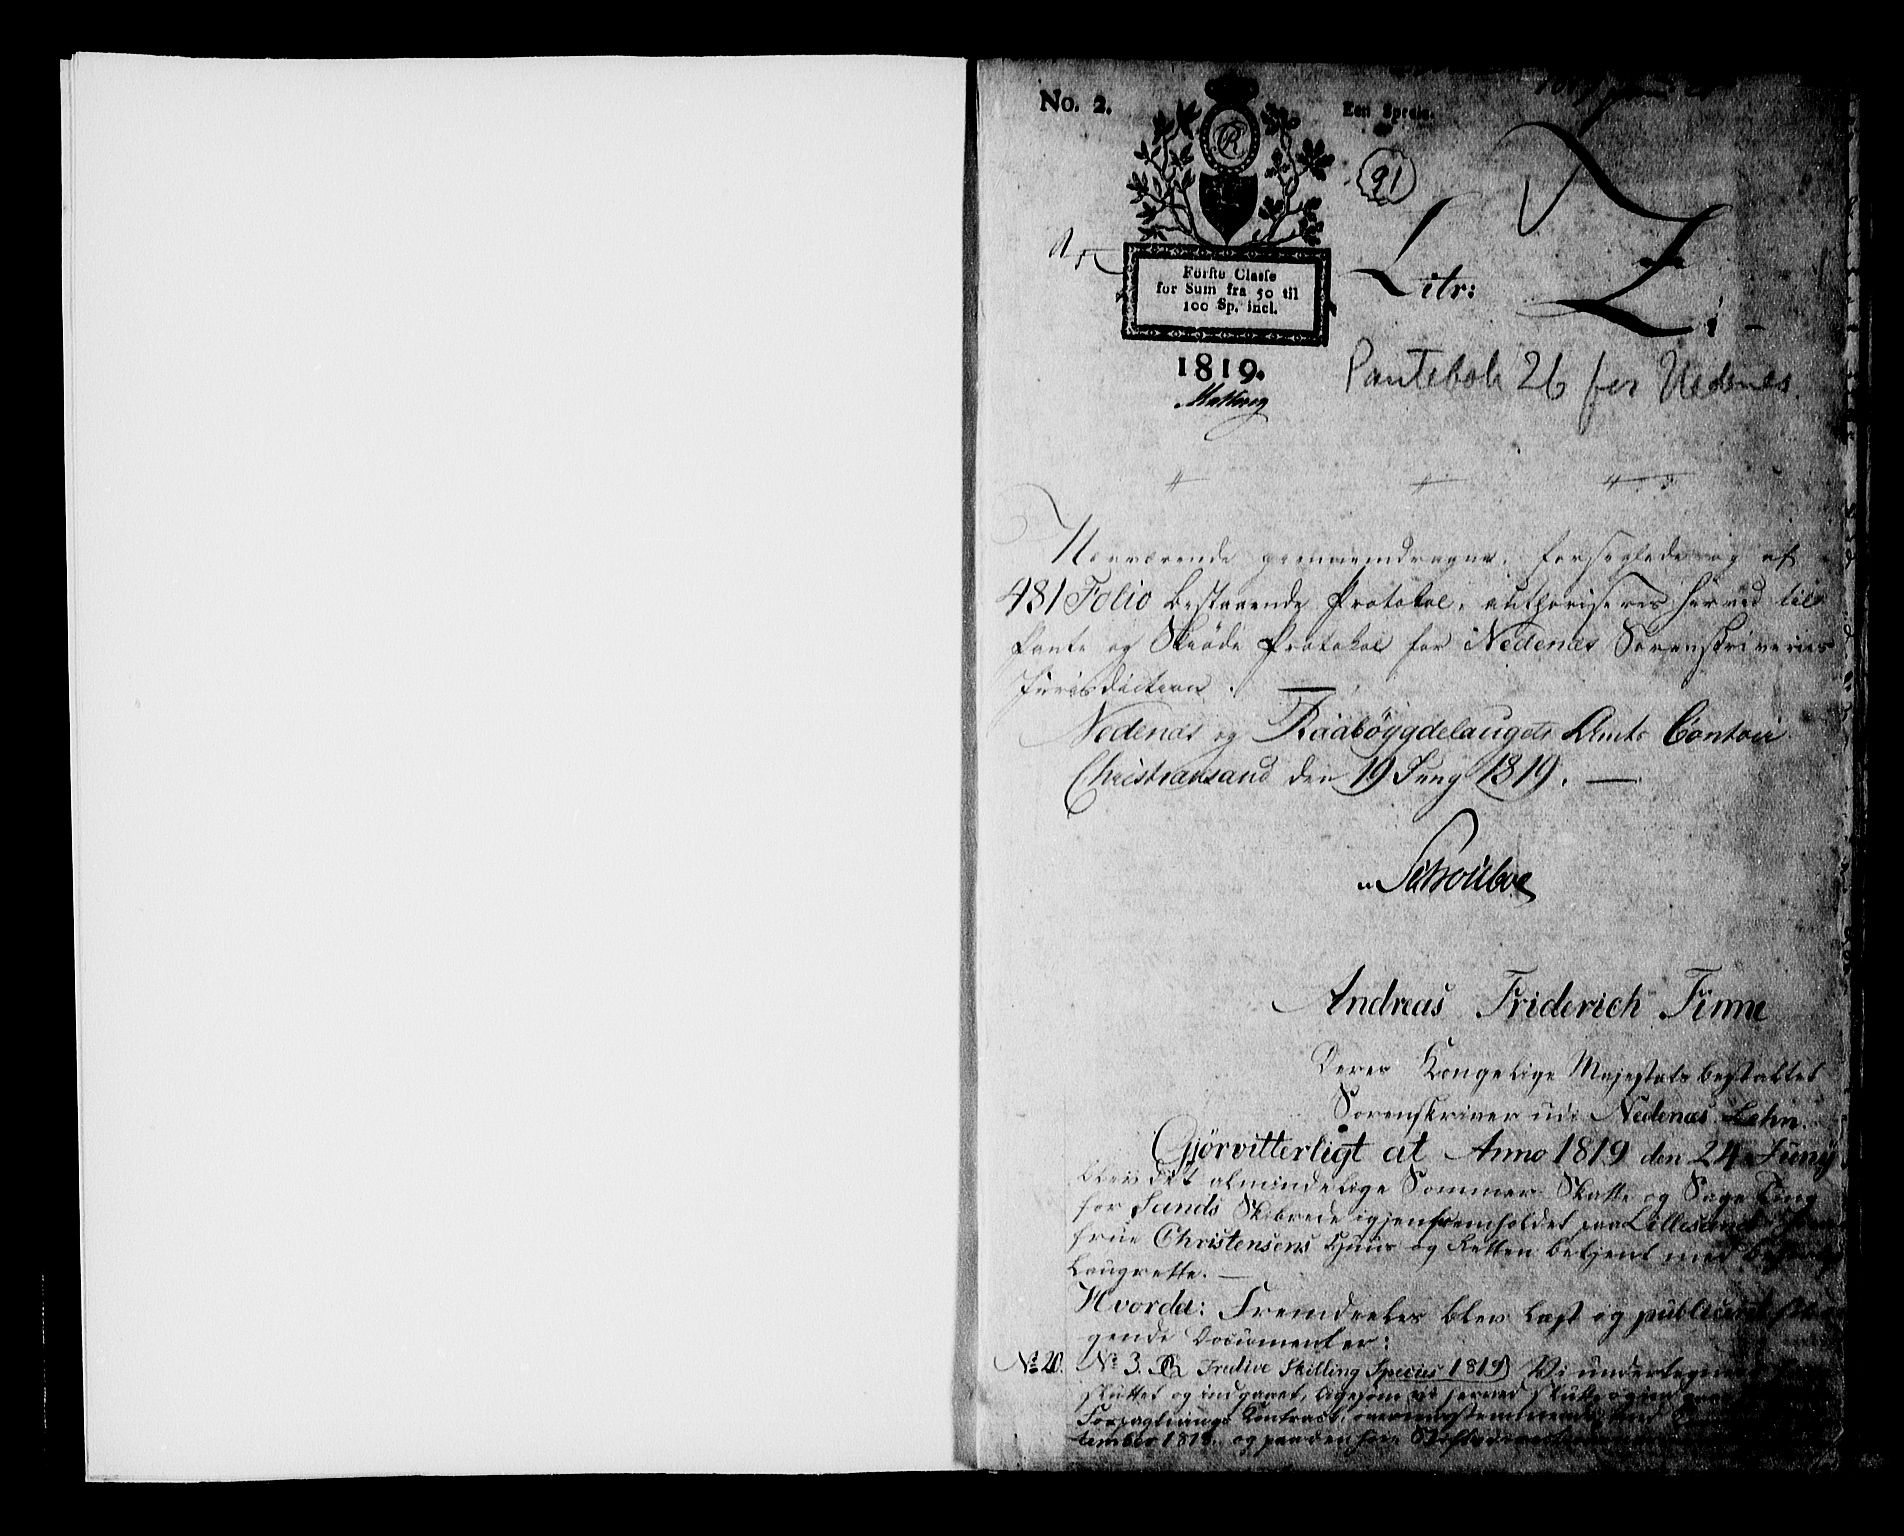 No. 2.
Een Specie.
91
Litr: Z.
Første Classe
for Sum fra 50 til
100 Sp. incl.
1819.
Pantebok 26 for Nedenes.
Nærværende giennemdragne, forseglede og af
481 Folio bestaaende Protokol, authoriseres herved til
Pante og Skiøde Protokol for Nedenes Sorenskriveries
Jurisdiction.
Nedenes og Raabøygdelaugets Amts Contoir
Christiansand den 19 Juny 1819. —
Andreas Friderich Finne
Deres Kongelige Majestæts bestalter
Sorenskriver udi Nedenæs Lehn.
Gjørvitterligt at Anno 1819 den 24 Juny
blev det almindelige Sommer Skatte og Sage Ting
for Sands Skibrede igjen fremholdet paa Lillesand
frue Christensens Huus og Retten betjent med
Laugrette. —
Hvorda: Fremdeeles blev Læst og publiceret
gende Documenter:
No 20. No 3. Tredive Skilling Species 1819) Vi undertegnede
sluttet og indgaaet, ligesom vi herved slutte og
Contract, overeensstemmende med
tember 1818. og paa den